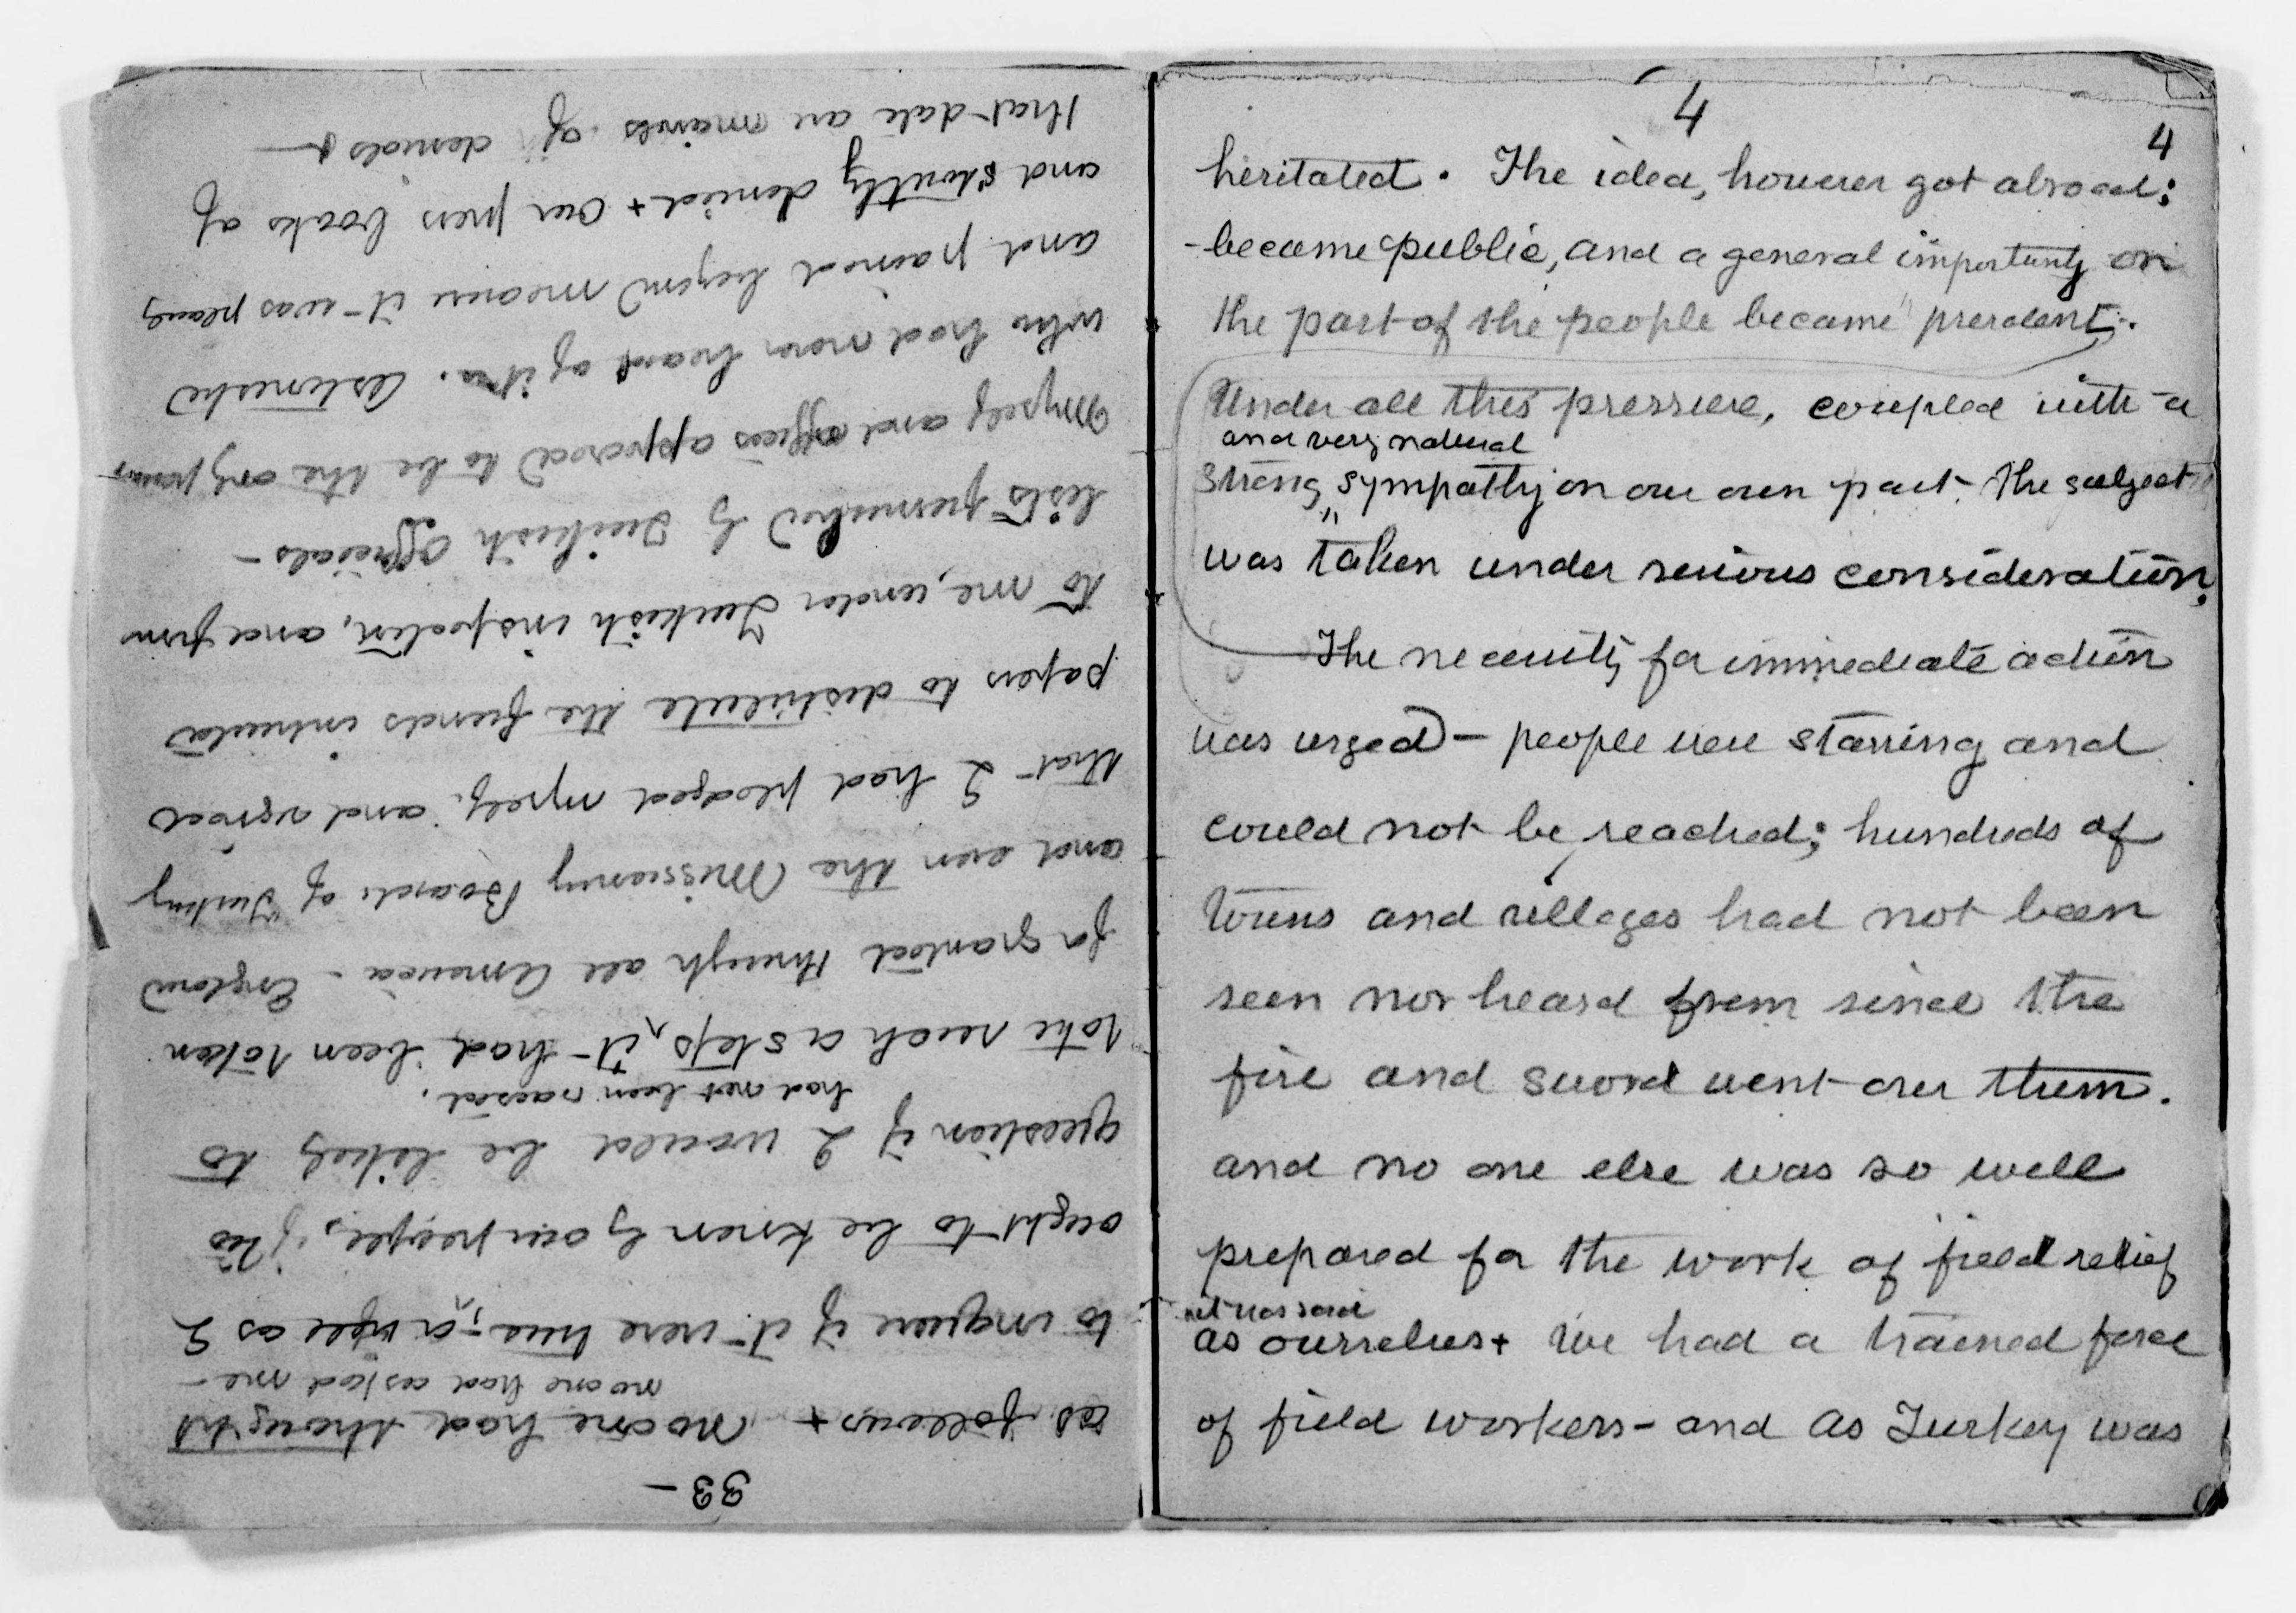 4
4
hesitated. The idea, however got abroad;
- became public, and a general importunity on
the part of the people became prevalent.
Under all this pressure, coupled with a
and very natural
strong " sympathy on our own part - the subject
was taken under serious consideration;
The necessity for immediate action
was urged - people were starving and
could not be reached; hundreds of
towns and villages had not been
seen nor heard from since the
fire and sword went over them.
and no one else was so well
prepared for the work of field relief
it was said
as ourselves + We had a trained force
of field workers - and as Turkey was
33 -
as follows + No one had thought
no one had asked me -
to inquire if it were true - as I
ought to be known by our people, if the
question if I would be likely to
had not been raised.
take such a step, it - had been taken
for granted through all America - England
and even the Missionary Boards of Turkey
that I had pledged myself, and agreed
papers to distribute the funds intrusted
to me, under Turkish inspection, and from
lists furnished by Turkish Officials -
Myself and officers appeared to be the only persons
who had never heard of it. Astonished
and pained beyond measure it was plainly
and stoutly denied + Our press books of
that date are marvels of denials +